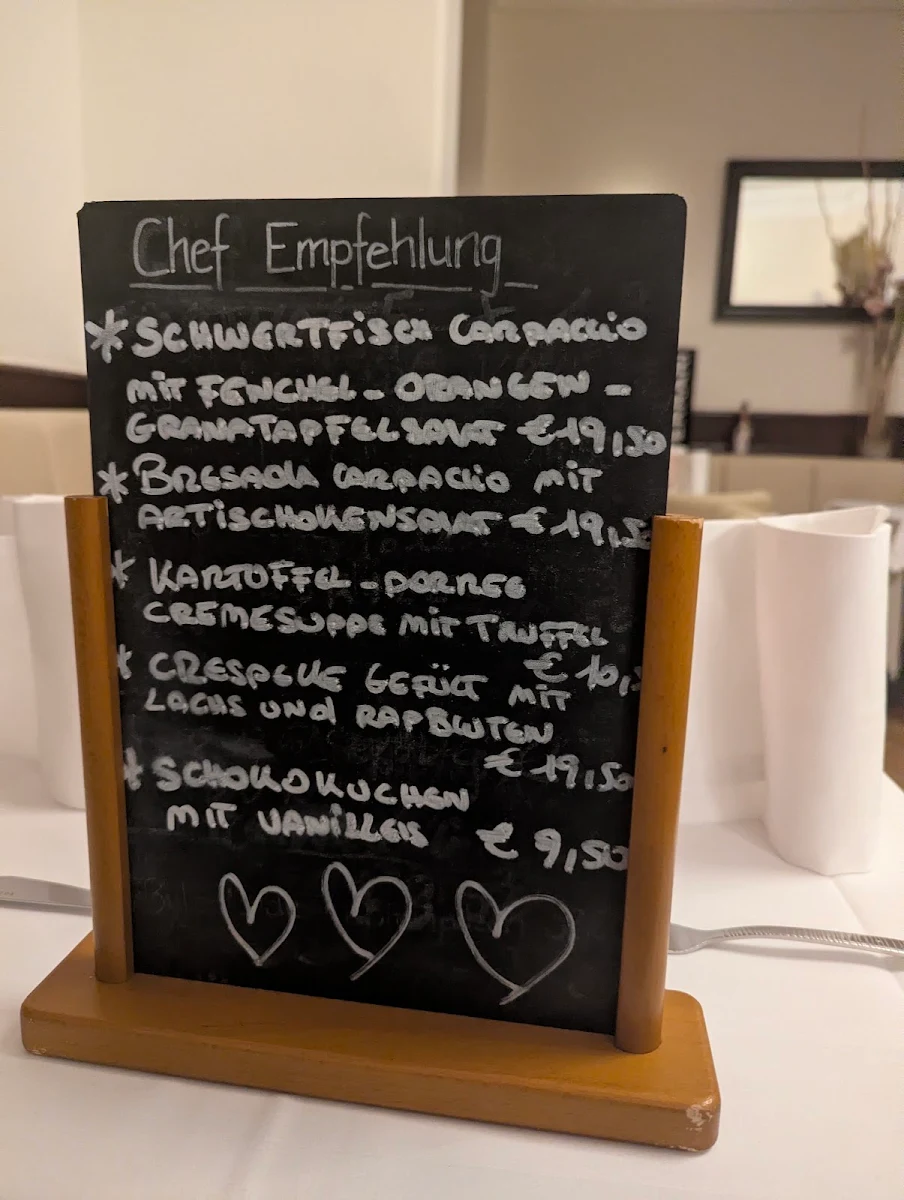 Chef Empfehlung
* SCHWERTFiSCH CARPACCiO
MiT FENCHEL - ORANGEN -
GRANATAPFELSALAT €19,50
* BRESAOLA CARPACCiO MiT
ARTiSCHOKENSALAT €19,5
* KARTOFFEL - PORREE
CREMESUPPE MiT TRUFFEL
€ 10,
* CRESPELLE GEFÜLLT MiT
LACHS UND RAPBLUTEN
€ 19,50
* SCHOKOKUCHEN
MIT VANiLLEiS € 9,50